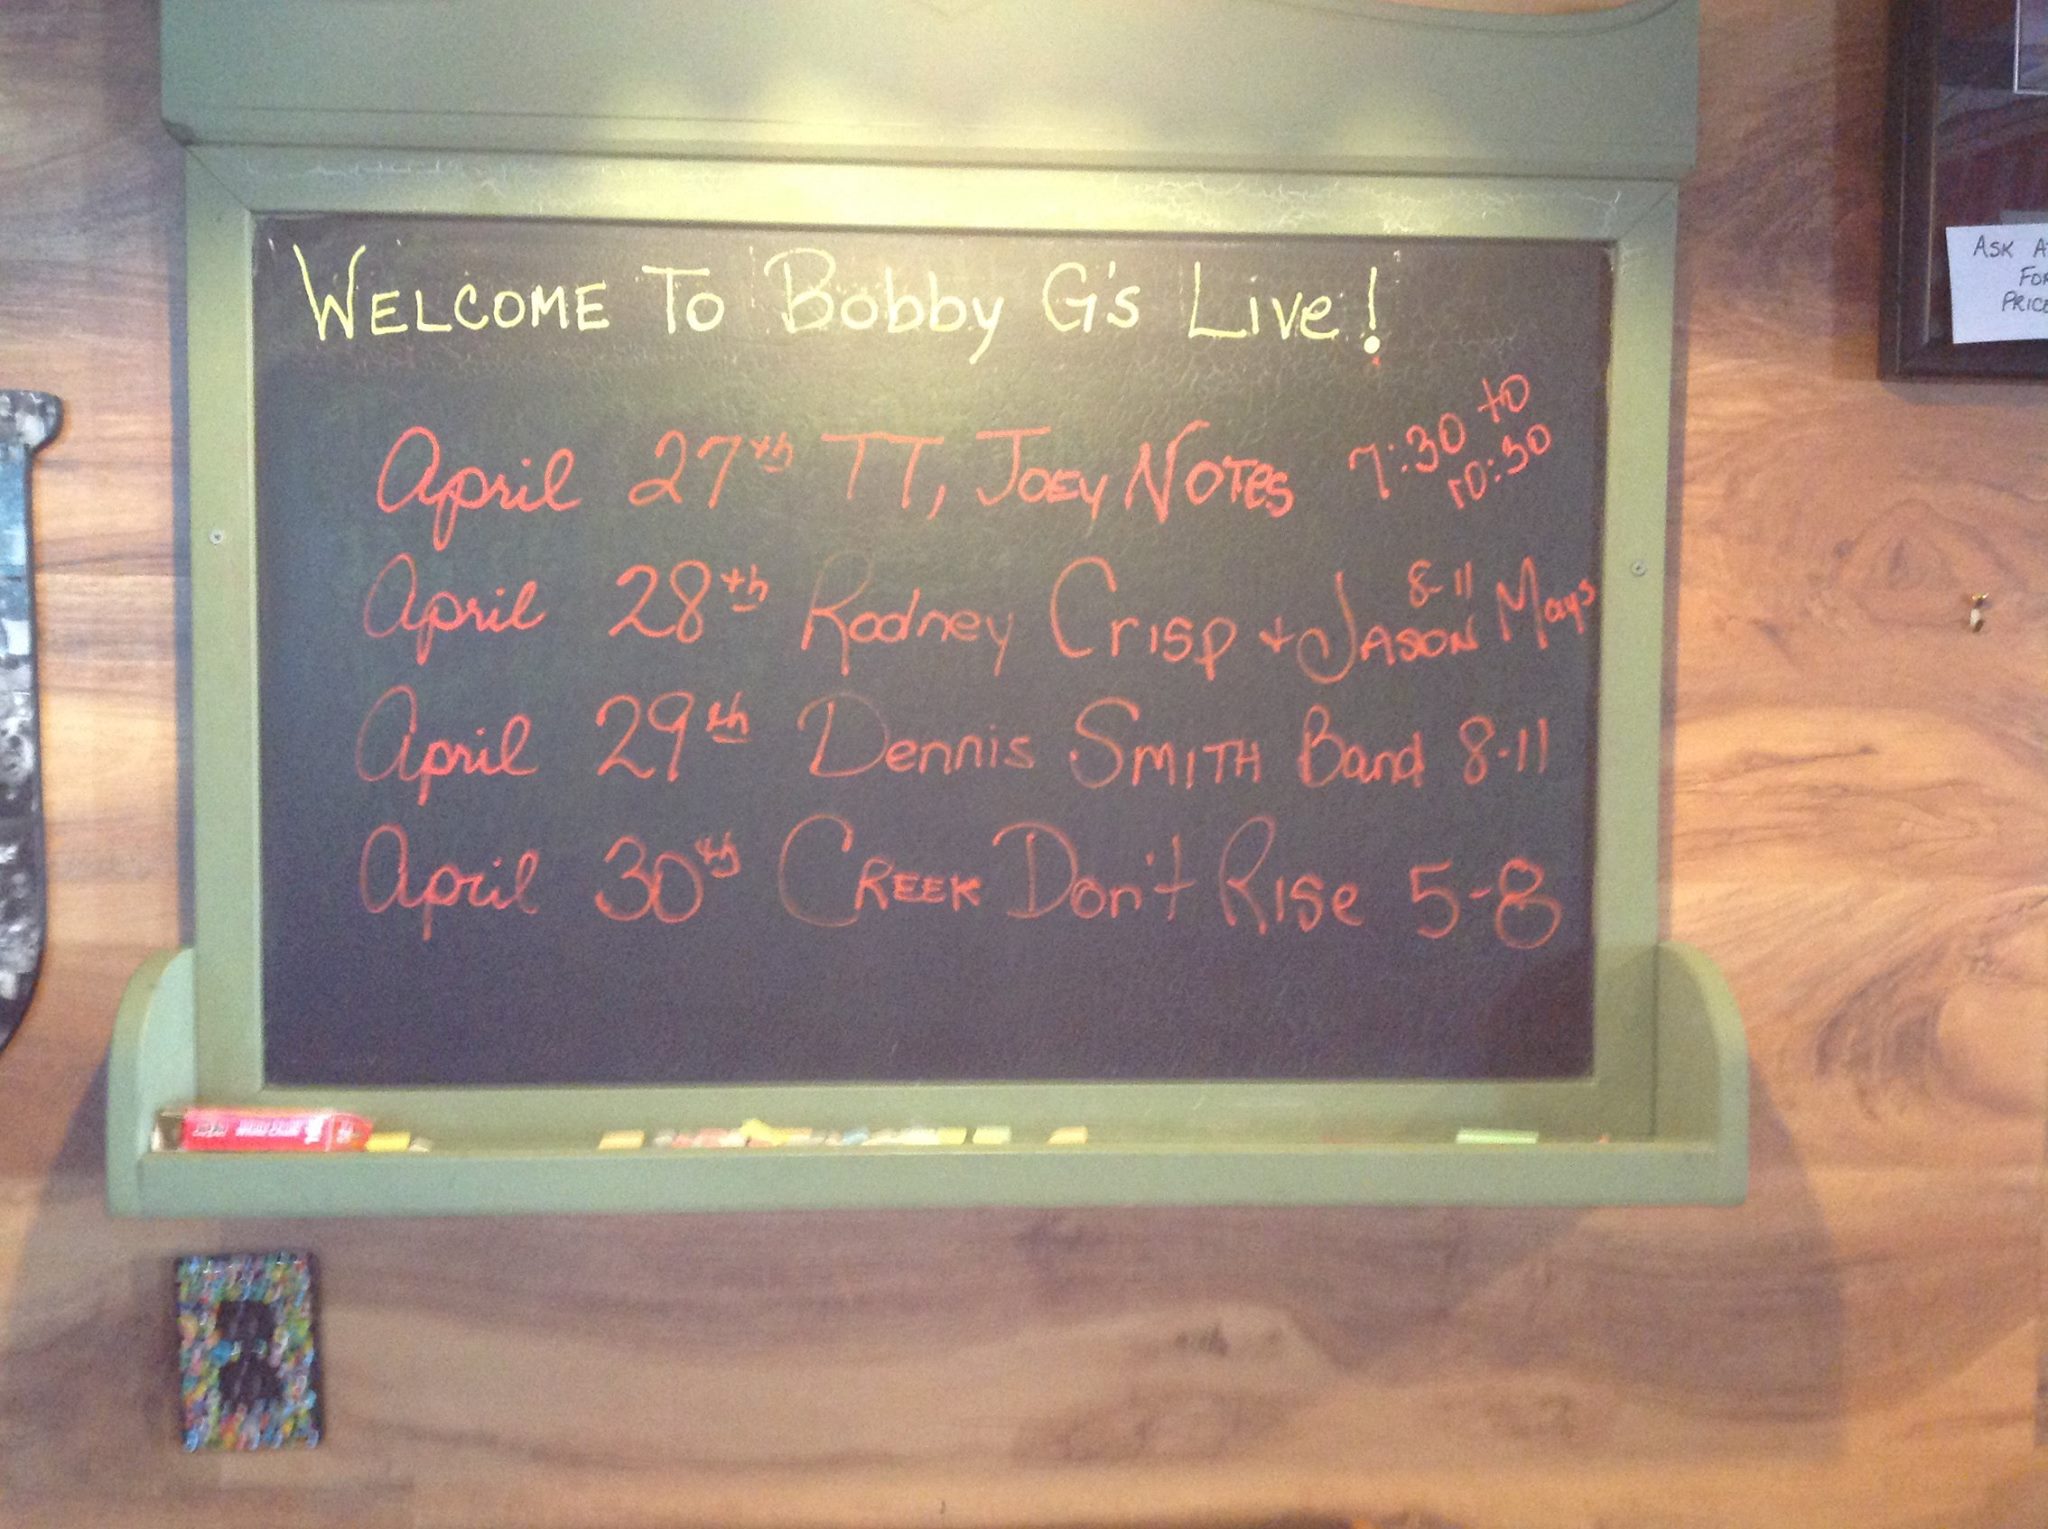 WELCOME TO Bobby G's Live!
April 27th TT, JOEY NOTES 7:30 to 10:30
April 28th Rodney Crisp + JASON Mays 8-11
April 29th Dennis SMITH Band 8-11
April 30th CREEK Don't Rise 5-8
ASK A
FOR
PRICE